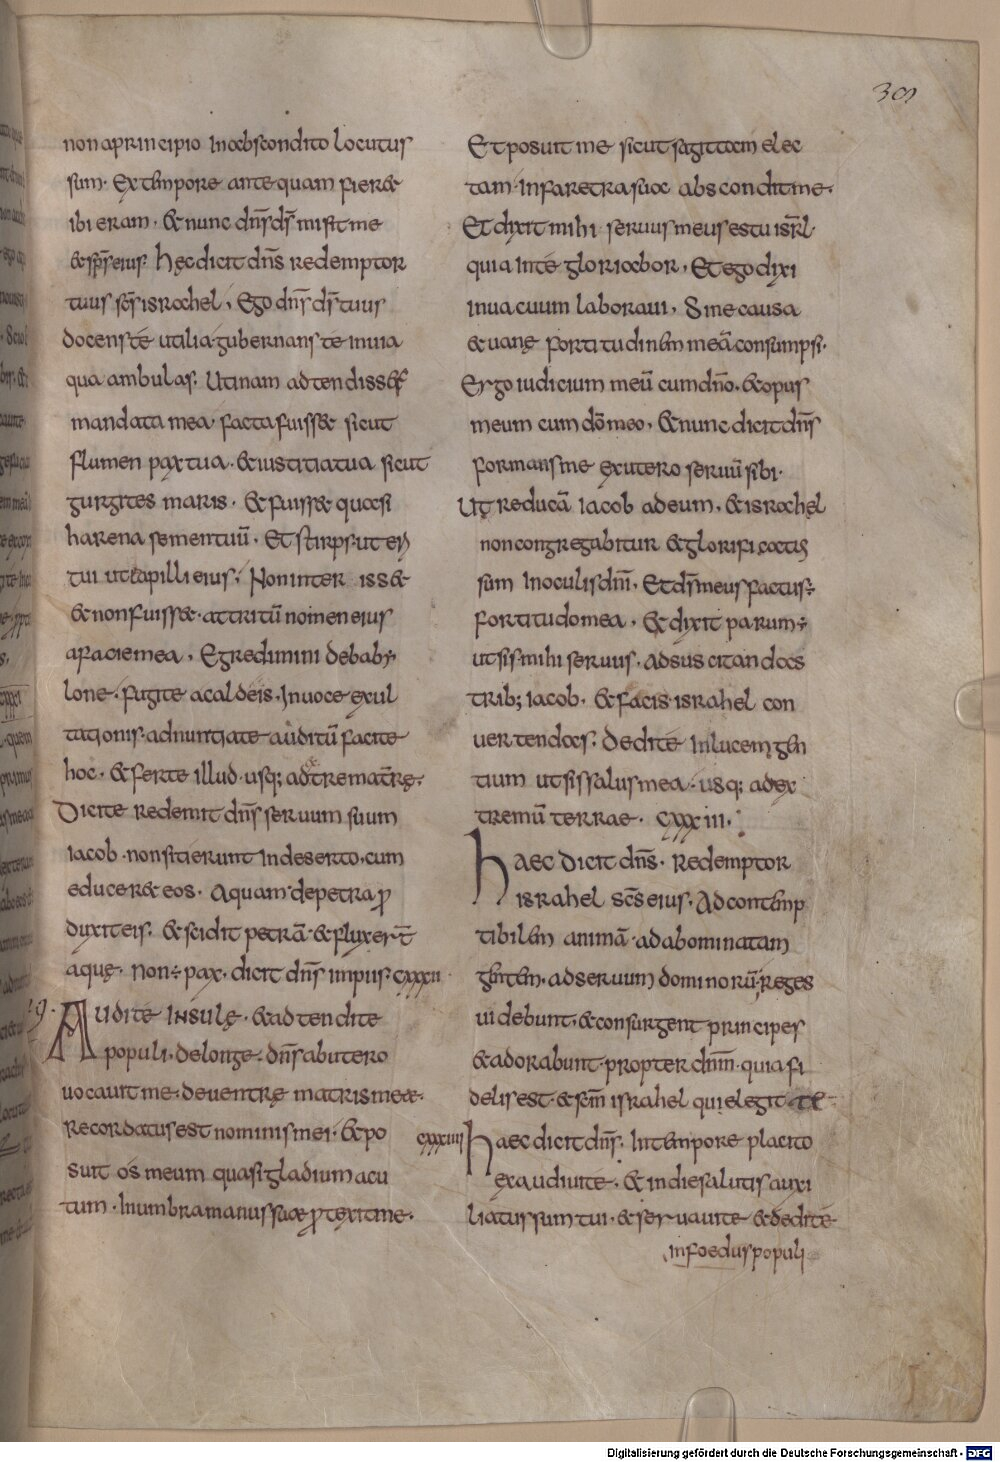 301
non a principio In abscondito locutus
sum· Ex tempore ante quam fieret
ibi eram· & nunc dn̄s ds̄ misit me
& sps̄ eius· hęc dicit dn̄s redemptor
tuus sc̄s israhel, Ego dn̄s ds̄ tuus
docens té utilia· gubernans té in uia
qua ambulas· Utinam adtendisses
mandata mea facta fuisset sicut
flumen pax tua· & iustitia tua sicut
gurgites maris· & fuisset quasi
harena semen tuū· Et stirps uteri
tui ut lapilli eius, Non interisset
& non fuisset· attritū nomen eius
a facie mea, Egredimini de baby
lone· fugite a caldeis· In uoce exul
tationis· adnuntiate· auditū facite
hoc· & ferte illud· usq; ad extrema terrę·
Dicite redemit dn̄s seruum suum
Iacob· non sitierunt In deserto, cum
educeret eos· Aquam de petra p
duxit eis· & scidit petrā & fluxert̄
aquę· Non ÷ pax· dicit dn̄s impiis· cxxxii
Audité Insulę· & adtendite
populi· delonge· dn̄s ab utero
uocauit me· de uentre matris meæ·
recordatus est nominis mei· & po
suit os meum quasi gladium acu
tum· In umbra manus suæ ptexit me·
Et posuit me sicut sagittam elec
tam· In faretra sua abscondit me·
Et dixit mihi seruus meus es tu isrl̄·
quia In té gloriabor, Et ego dixi
In uacuum laboraui, Sine causa
& uanę fortitudinem meā consumpsi·
Ergo iudicium meū cum dn̄o· & opus
meum cum dō meo, & nunc dicit dn̄s
formans me ex utero seruū sibi·
Ut reducā Iacob ad eum, & israhel
non congregabitur & glorificatus
sum In oculis dn̄i, Et ds̄ meus factus ÷
fortitudo mea, & dixit parum ÷
ut sis mihi seruus, ad suscitandas
trib; iacob· & faces israhel con
uertendas· Dedi té In lucem gen
tium ut sis salus mea· usq; ad ex
tremū terrae· cxxxiii·
haec dicit dn̄s· Redemptor
israhel sc̄s eius· Ad contemp
tibilem animā· ad abominatam
gentem· ad seruum dominorū· reges
uidebunt· & consurgent principes
& adorabunt· propter dnm̄· quia fi
delis est· & scm̄ israhel qui elegit te
cxxxiiii haec dicit dn̄s· In tempore placito
exaudiui té· & in die salutis auxi
liatus sum tui· & seruaui te & dedi té
in foedus populi
Digitalisierung gefördert durch die Deutsche Forschungsgemeinschaft - DFG